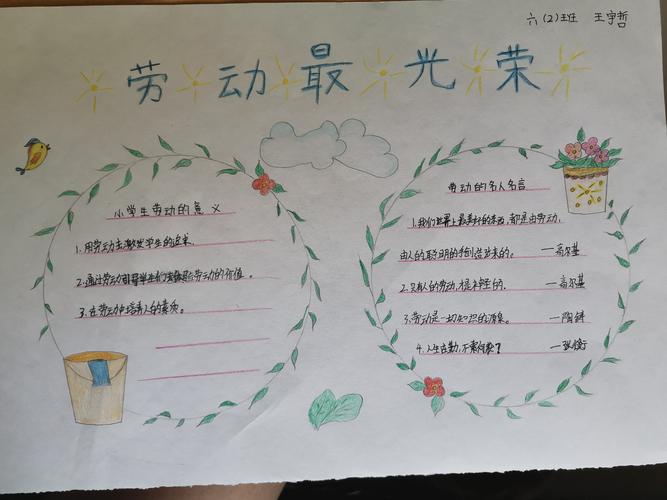 六(2)班 王宇哲
劳动最光荣
小学生劳动的意义
1.用劳动去激发学生的追求。
2.通过劳动引导学生们去体现劳动的价值。
3.在劳动中培养人的素质。
劳动的名人名言
1.我们世界上最美好的东西,都是由劳动、
由人的聪明的手创造出来的。 —高尔基
2.只有人的劳动才是神圣的。 —高尔基
3.劳动是一切知识的源泉。 —陶铸
4.人生在勤,不索何获? —张衡